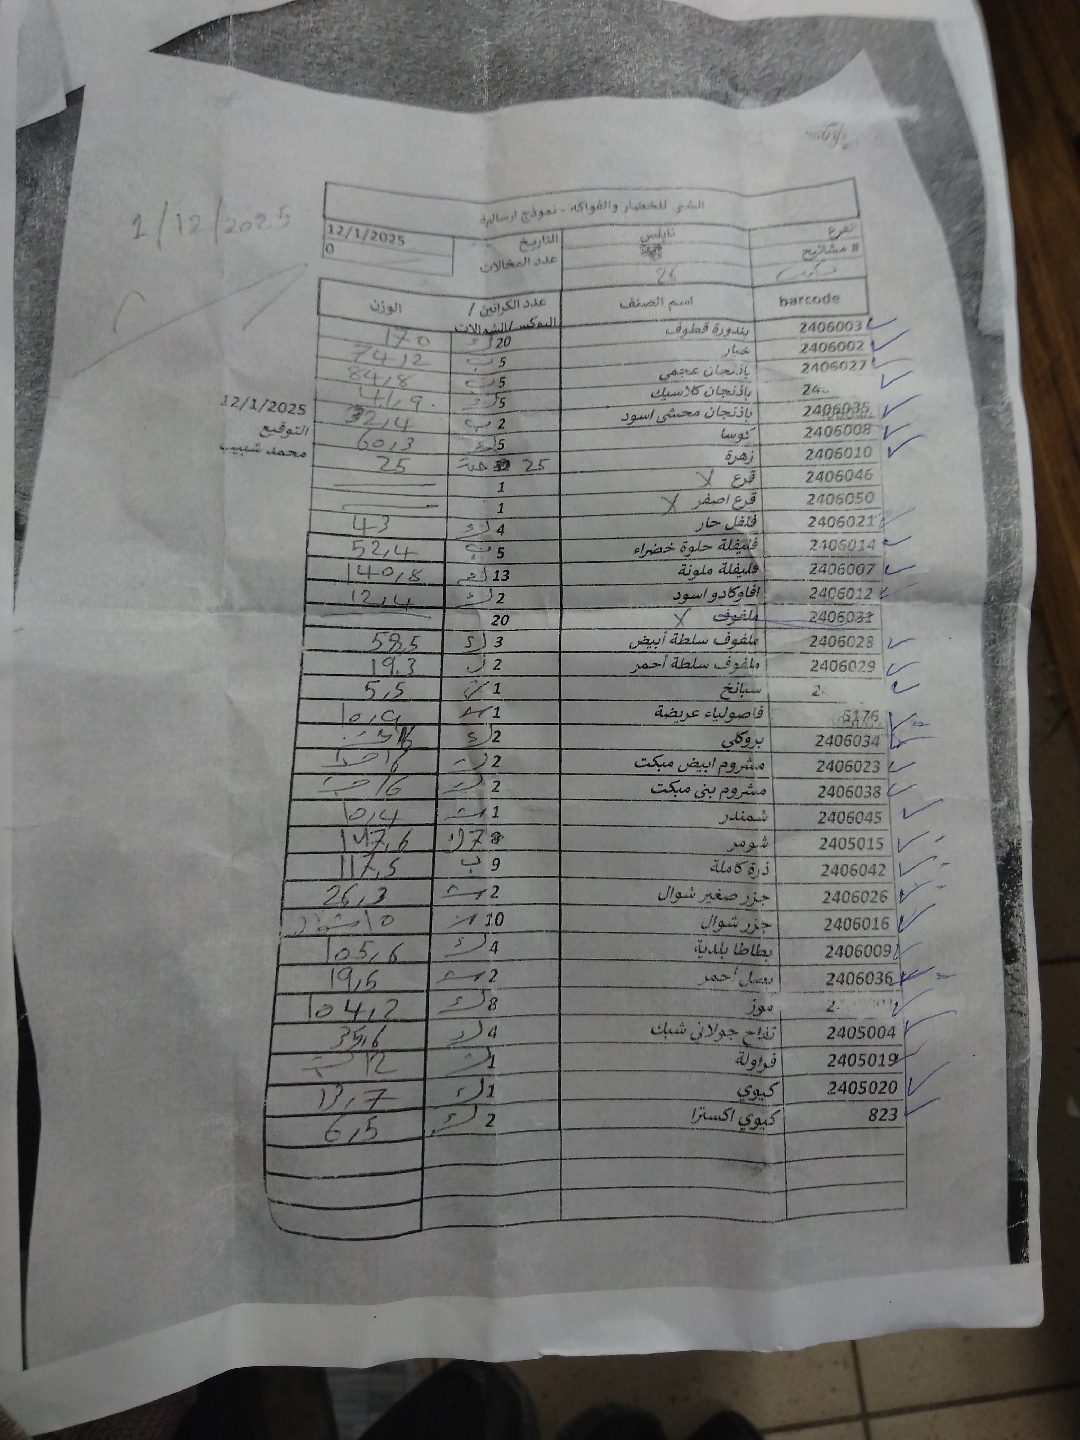 1/12/2025
الشني للخضار والفواكه - نموذج ارسالية
الفرع نابلس التاريخ 12/1/2025
# مشاتيح 26 عدد المخالات 0
barcode اسم الصنف عدد الكراتين / البوكس/الشوالات الوزن
2406003 بندورة قطوف 20 ك 170
2406002 خيار 5 ب 74,2
2406027 باذنجان عجمي 5 ب 84,8
باذنجان كلاسيك 5 ك 41,9
2406035 باذنجان محشي اسود 2 ب 32,4
2406008 كوسا 5 ك 60,3
2406010 زهرة 25 حبة 25
2406046 قرع X 1
2406050 قرع اصفر X 1
2406021 فلفل حار 4 ك 43
2406014 فليفلة حلوة خضراء 5 ب 52,4
2406007 فليفلة ملونة 13 ك 140,8
2406012 افاوكادو اسود 2 ك 12,4
2406031 ملفوف X 20
2406028 ملفوف سلطة أبيض 3 ك 58,5
2406029 ملفوف سلطة أحمر 2 ك 19,3
سبانخ 1 5,5
فاصولياء عريضة 1 10,9
2406034 بروكلي 2 ك
2406023 مشروم ابيض مبكت 2
2406038 مشروم بني مبكت 2 16
2406045 شمندر 1 10,4
2405015 شومر 7 ك 147,6
2406042 ذرة كاملة 9 ب 117,5
2406026 جزر صغير شوال 2 26,3
2406016 جزر شوال 10
2406009 بطاطا بلدية 4 ك 105,6
2406036 بصل أحمر 2 19,6
موز 8 ك 104,2
2405004 تفاح جولاني شبك 4 ك 35,6
2405019 فراولة 1 12
2405020 كيوي 1 ك 13,7
823 كيوي اكسترا 2 ك 6,5
12/1/2025
التوقيع
محمد شبيب